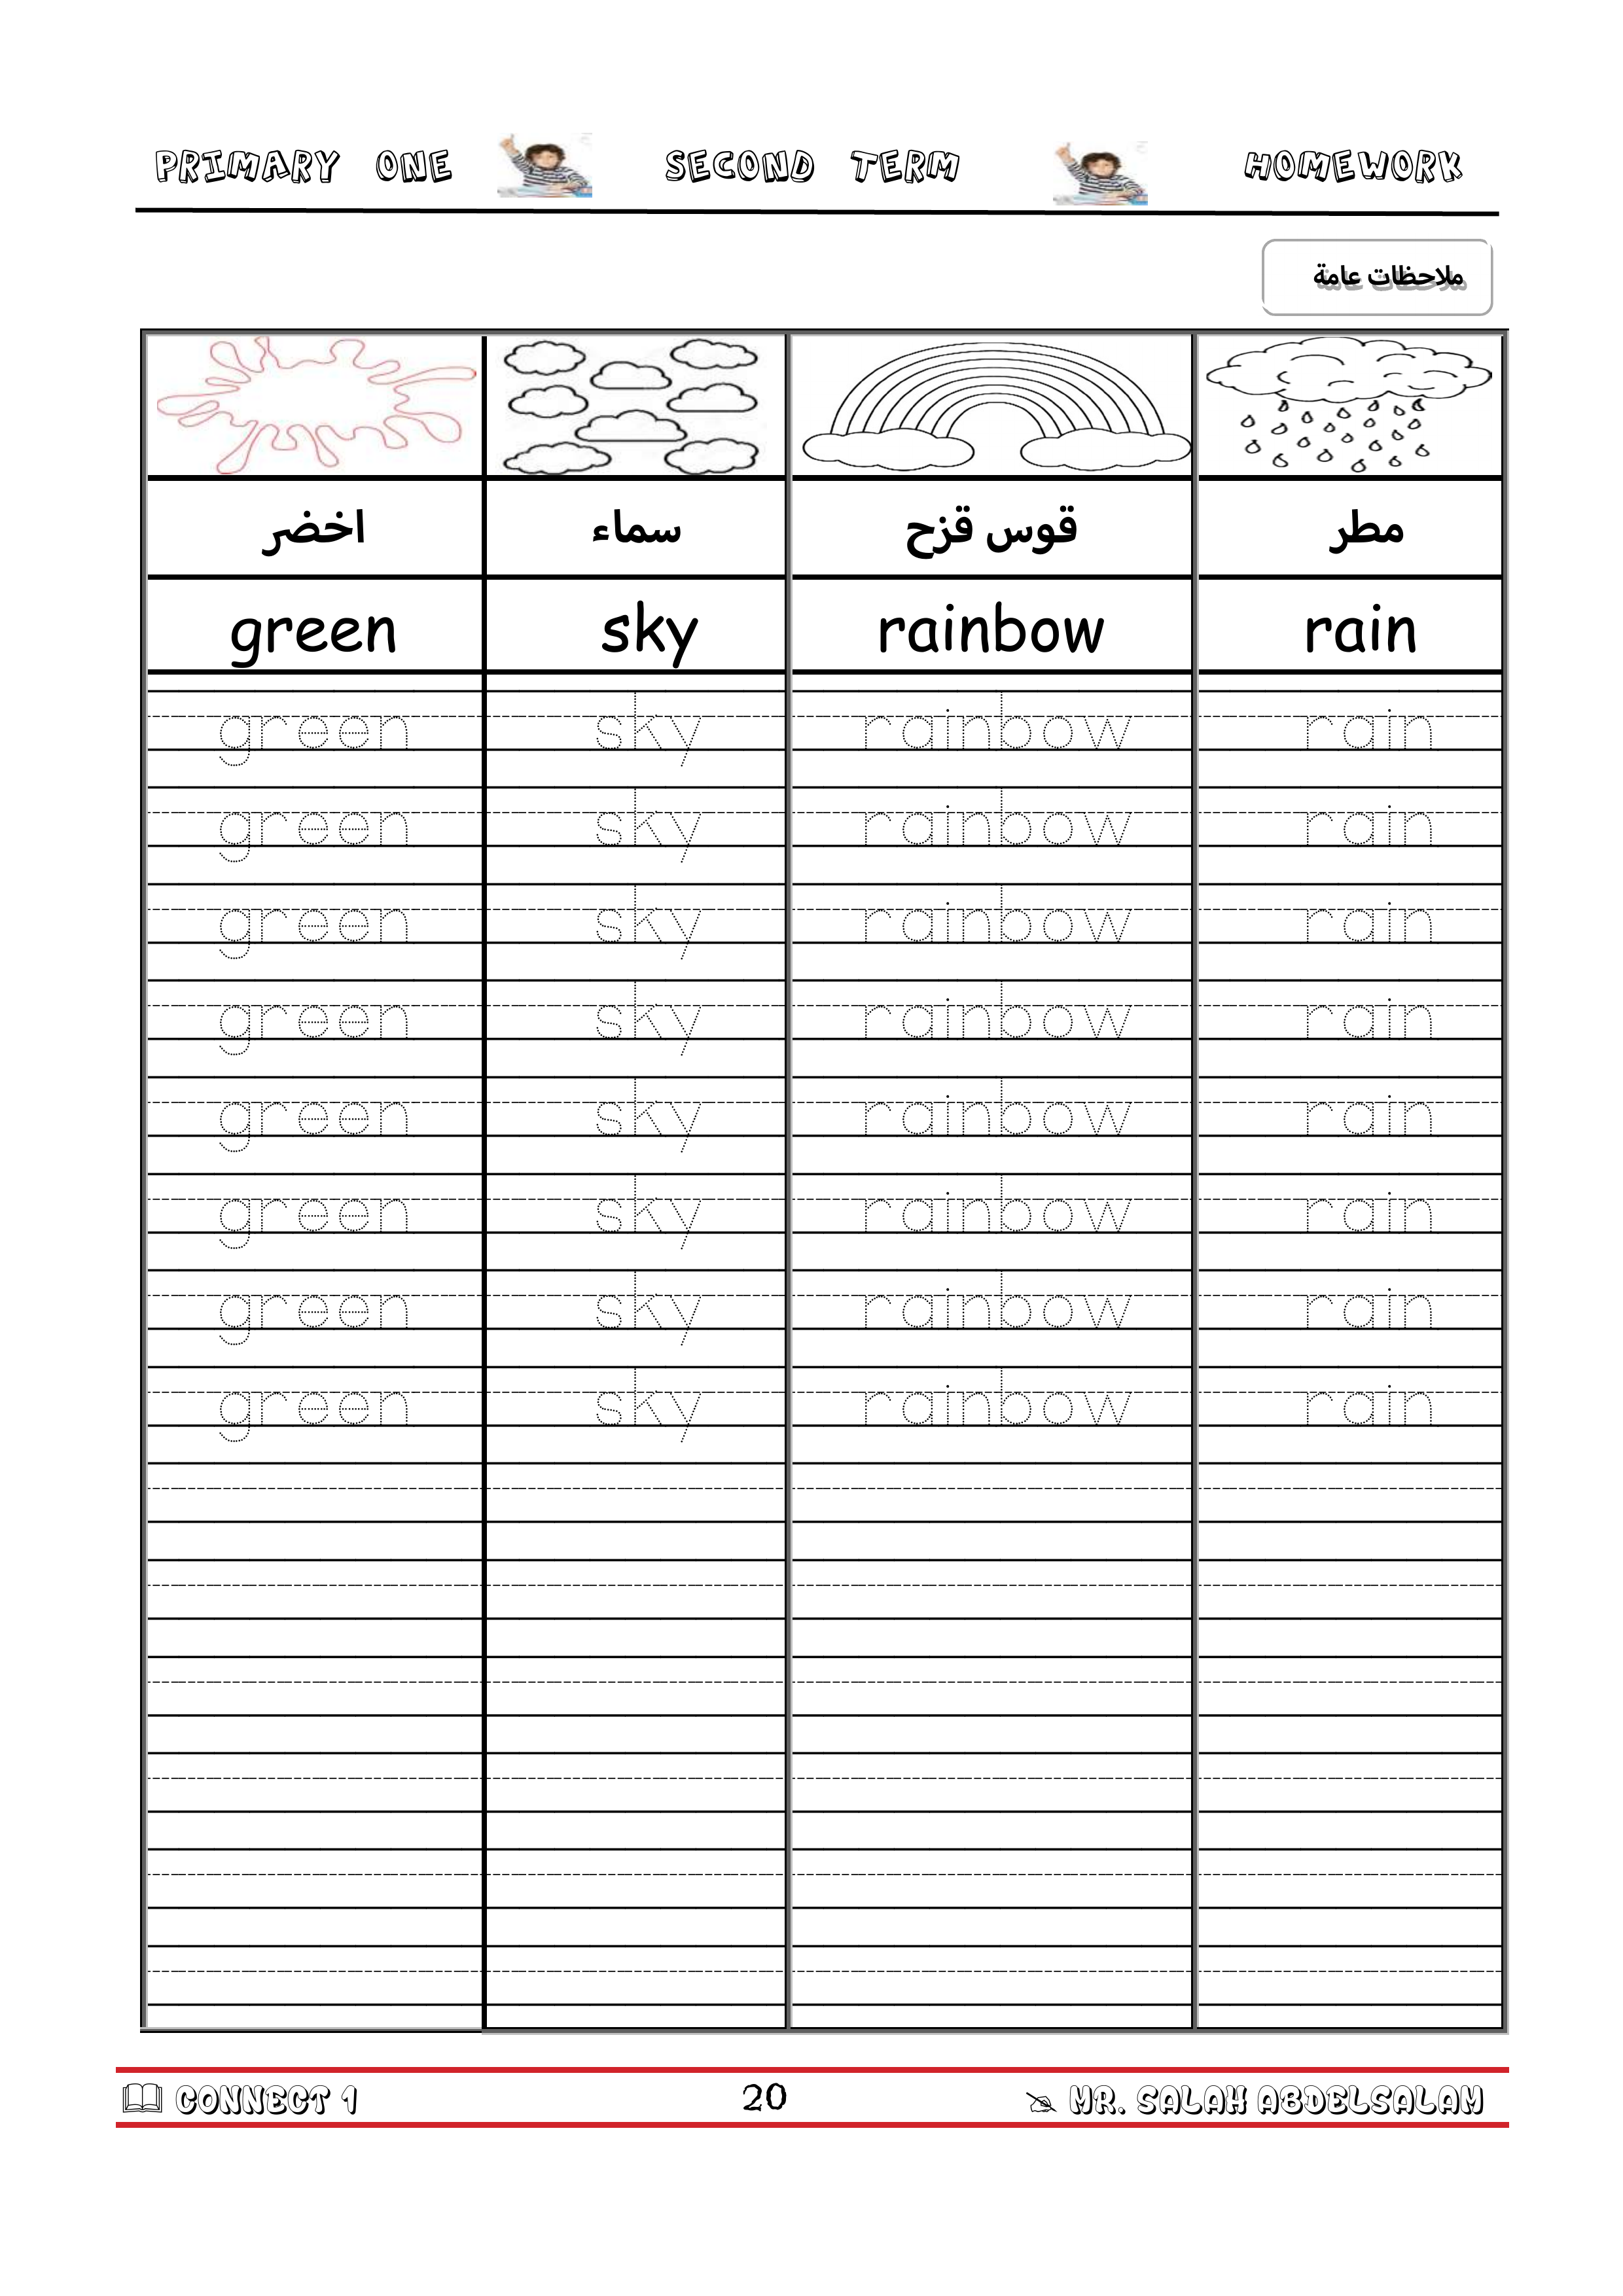 PRIMARY ONE SECOND TERM HOMEWORK
ملاحظات عامة
اخضر سماء قوس قزح مطر
green sky rainbow rain
green sky rainbow rain
green sky rainbow rain
green sky rainbow rain
green sky rainbow rain
green sky rainbow rain
green sky rainbow rain
green sky rainbow rain
green sky rainbow rain
CONNECT 1 20 MR. SALAH ABDELSALAM